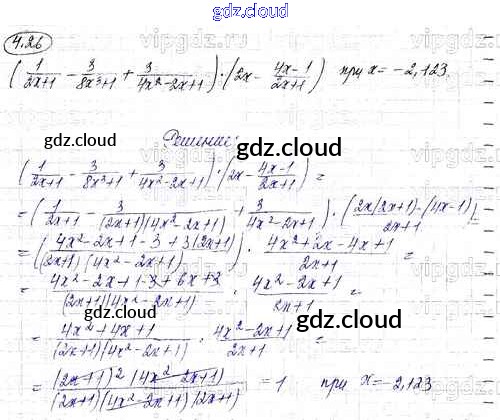 gdz.cloud
4.26
(1/(2x+1) - 3/(8x³+1) + 3/(4x²-2x+1)) · (2x - (4x-1)/(2x+1)) при x = -2,123.
gdz.cloud
Решение:
gdz.cloud
(1/(2x+1) - 3/(8x³+1) + 3/(4x²-2x+1)) · (2x - (4x-1)/(2x+1)) =
= (1/(2x+1) - 3/((2x+1)(4x²-2x+1)) + 3/(4x²-2x+1)) · ((2x(2x+1)-(4x-1))/(2x+1)) =
= ((4x²-2x+1-3+3(2x+1))/((2x+1)(4x²-2x+1))) · (4x²+2x-4x+1)/(2x+1) =
= (4x²-2x+1-3+6x+3)/((2x+1)(4x²-2x+1)) · (4x²-2x+1)/(2x+1) =
= (4x²+4x+1)/((2x+1)(4x²-2x+1)) · (4x²-2x+1)/(2x+1) =
= ((2x+1)²(4x²-2x+1))/((2x+1)(4x²-2x+1)(2x+1)) = 1 при x = -2,123
gdz.cloud
gdz.cloud
gdz.cloud
gdz.cloud